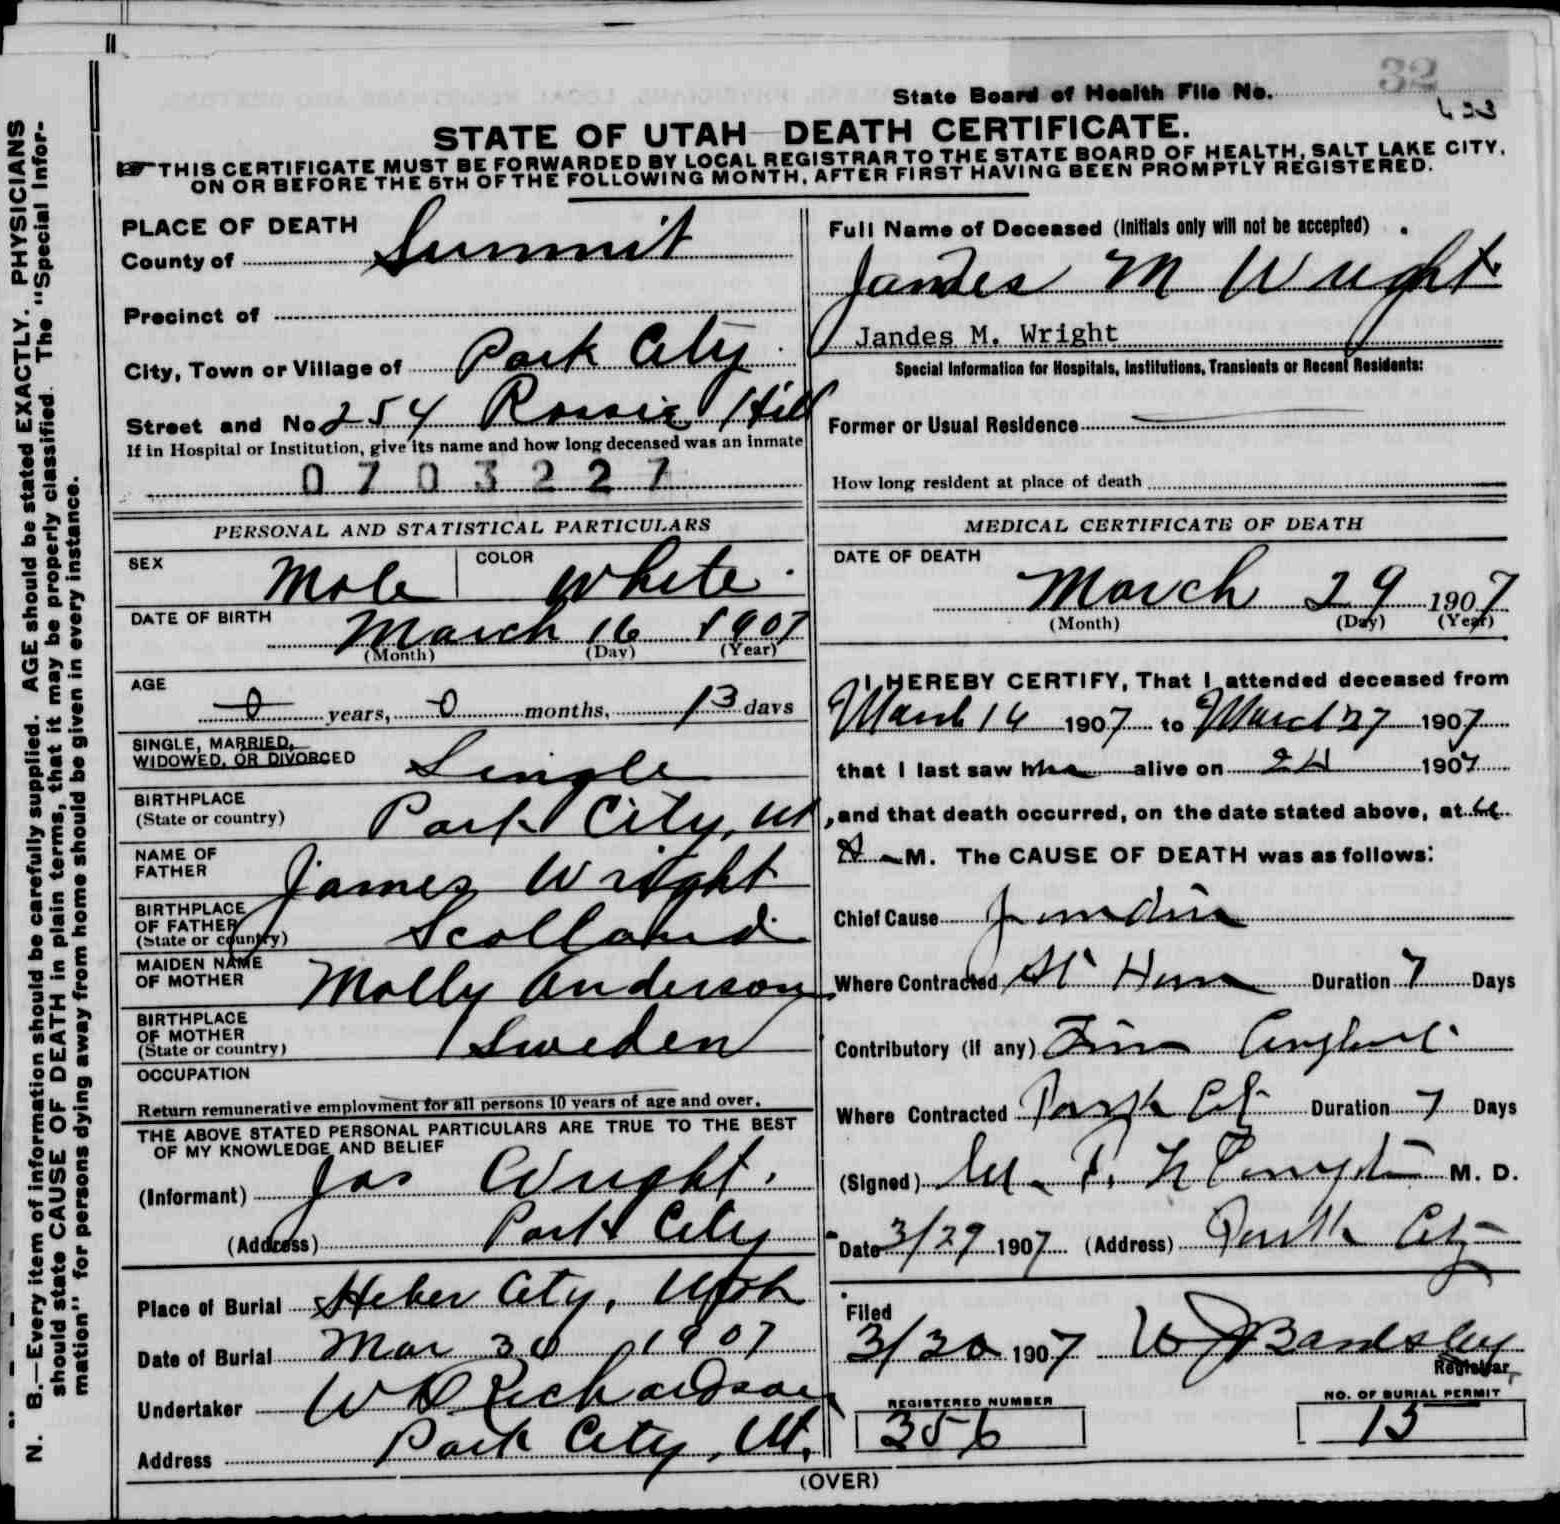 32
State Board of Health File No.
STATE OF UTAH DEATH CERTIFICATE.
THIS CERTIFICATE MUST BE FORWARDED BY LOCAL REGISTRAR TO THE STATE BOARD OF HEALTH, SALT LAKE CITY,
ON OR BEFORE THE 5TH OF THE FOLLOWING MONTH, AFTER FIRST HAVING BEEN PROMPTLY REGISTERED.
N. B.—Every item of information should be carefully supplied. AGE should be stated EXACTLY. PHYSICIANS
should state CAUSE OF DEATH in plain terms, that it may be properly classified. The "Special Infor-
mation" for persons dying away from home should be given in every instance.
PLACE OF DEATH
County of Summit
Precinct of
City, Town or Village of Park City
Street and No 254 Rossie Hill
If in Hospital or Institution, give its name and how long deceased was an inmate
0703227
Full Name of Deceased (Initials only will not be accepted)
Jandes M Wright
Jandes M. Wright
Special Information for Hospitals, Institutions, Transients or Recent Residents:
Former or Usual Residence
How long resident at place of death
PERSONAL AND STATISTICAL PARTICULARS
SEX Male COLOR White
DATE OF BIRTH March 16 1907
(Month) (Day) (Year)
AGE
0 years, 0 months, 13 days
SINGLE, MARRIED,
WIDOWED, OR DIVORCED Single
BIRTHPLACE
(State or country) Park City, Ut
NAME OF
FATHER James Wright
BIRTHPLACE
OF FATHER
(State or country) Scotland
MAIDEN NAME
OF MOTHER Molly Anderson
BIRTHPLACE
OF MOTHER
(State or country) Sweden
OCCUPATION
Return remunerative employment for all persons 10 years of age and over.
THE ABOVE STATED PERSONAL PARTICULARS ARE TRUE TO THE BEST
OF MY KNOWLEDGE AND BELIEF
(Informant) Jas Wright.
(Address) Park City
Place of Burial Heber City, Utah
Date of Burial Mar 30 1907
Undertaker W D Richardson
Address Park City, Ut.
MEDICAL CERTIFICATE OF DEATH
DATE OF DEATH
March 29 1907
(Month) (Day) (Year)
I HEREBY CERTIFY, That I attended deceased from
March 16 1907 to March 27 1907
that I last saw h alive on 24 1907
, and that death occurred, on the date stated above, at
A M. The CAUSE OF DEATH was as follows:
Chief Cause
Where Contracted At Home Duration 7 Days
Contributory (if any)
Where Contracted Park City Duration 7 Days
(Signed) M. D.
Date 3/29 1907 (Address) Park City
Filed
3/30 1907 W J Bardsley
Registrar,
REGISTERED NUMBER
356
NO. OF BURIAL PERMIT
15
(OVER)